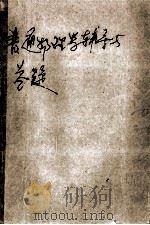 普通物理学辅导与
答疑